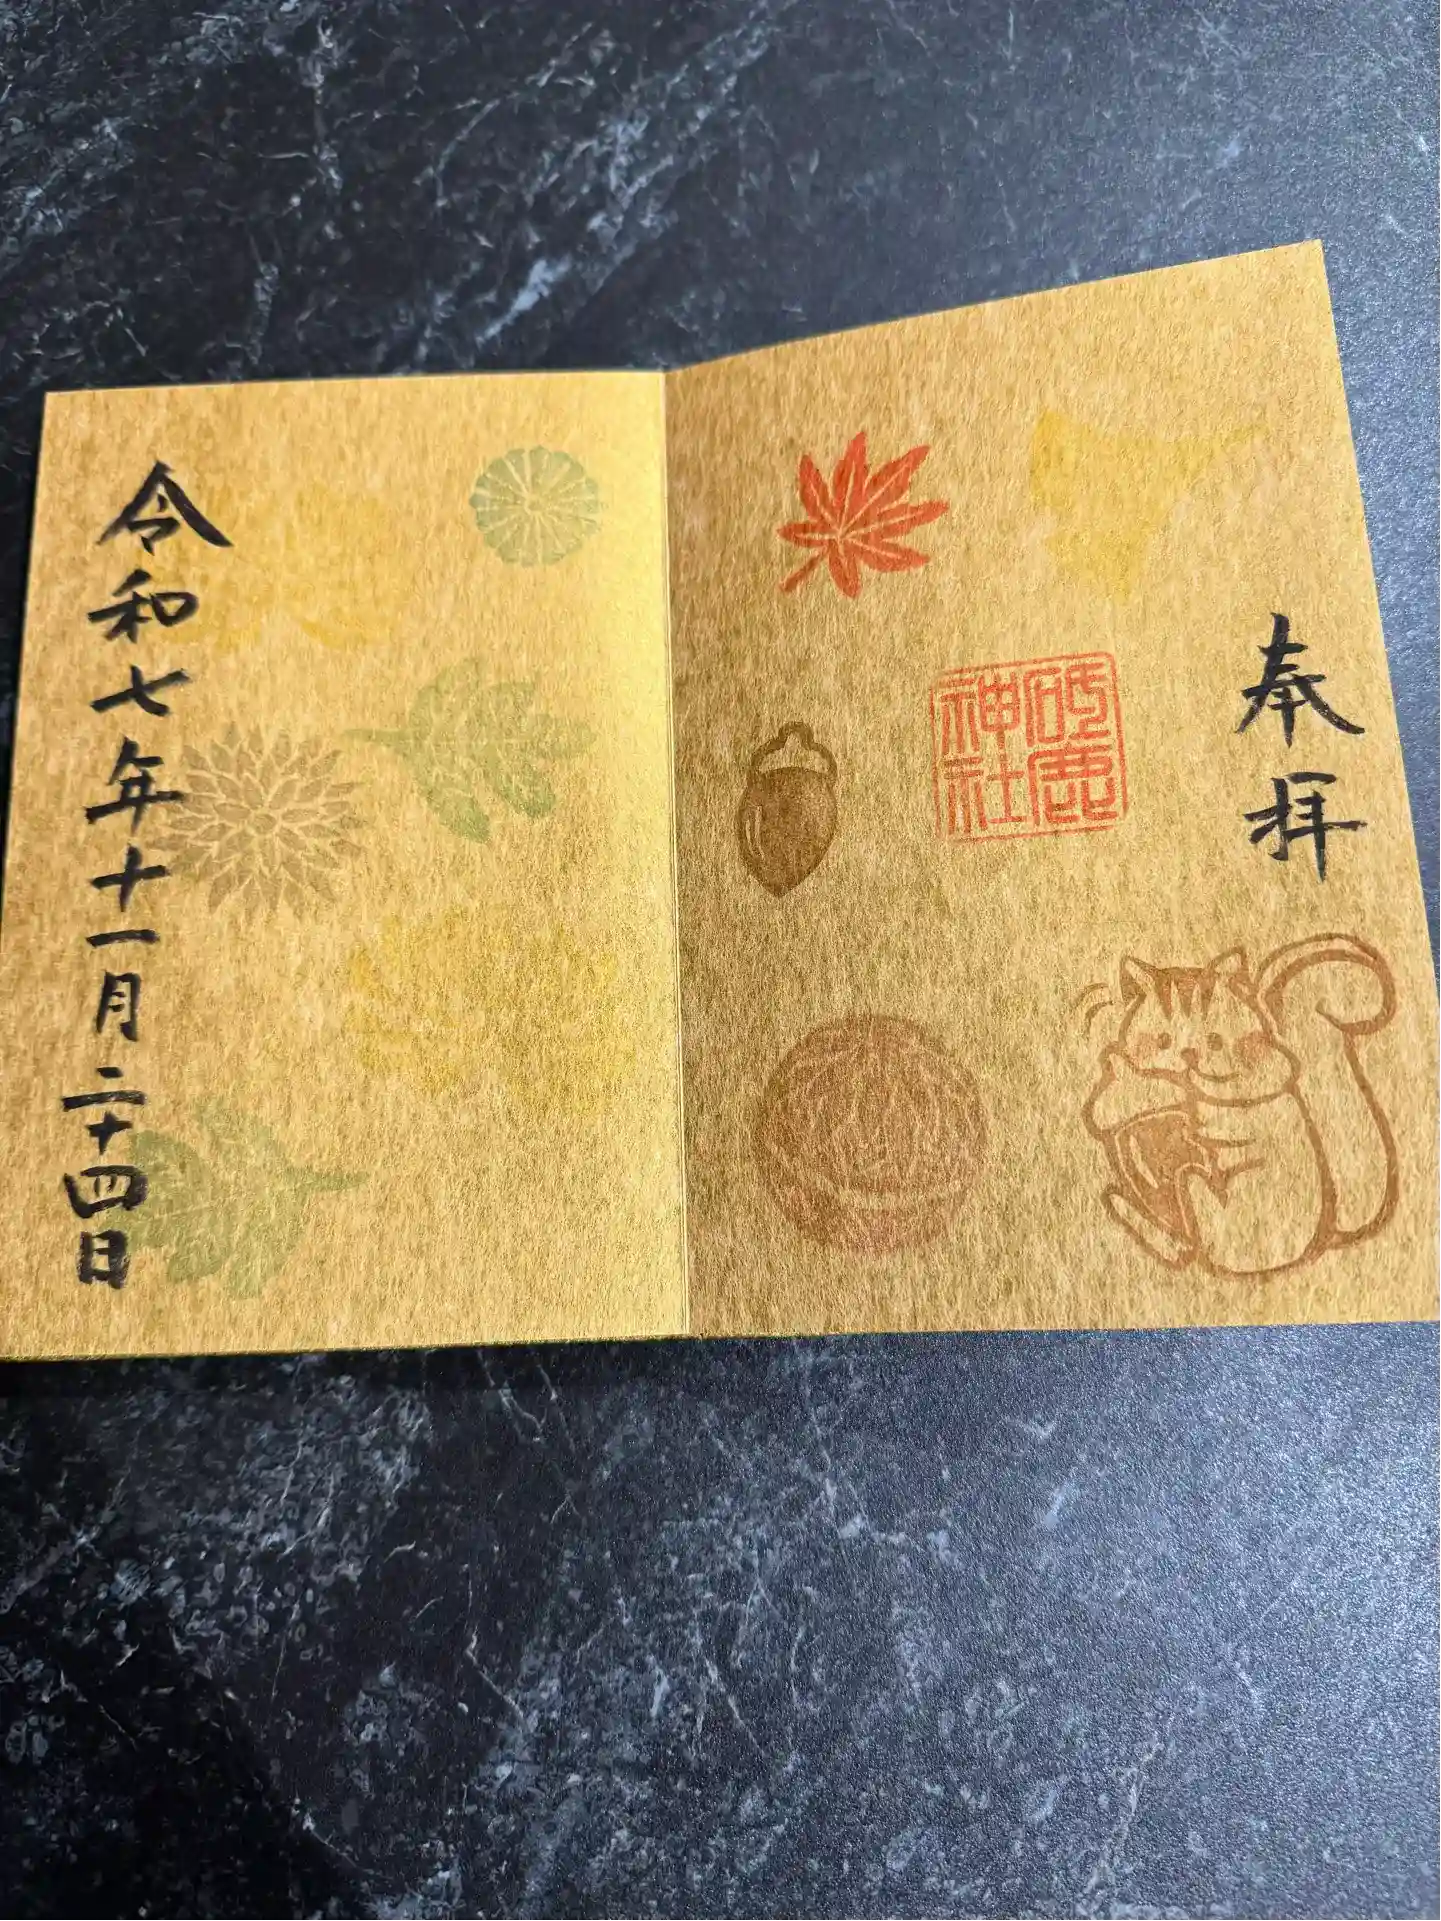 奉拝
砥鹿
神社
令和七年十一月二十四日